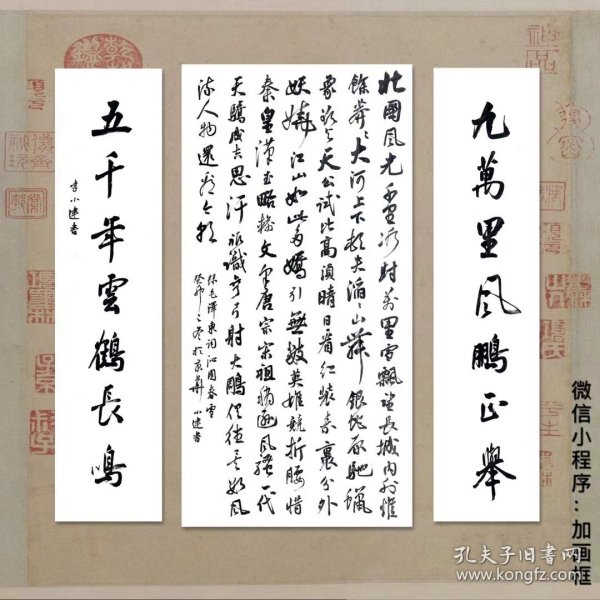 九萬里风鹏正舉
北國风光千里冰封万里雪飘望長城内外惟
餘莽〻大河上下顿失滔〻山舞銀蛇原驰蠟
象欲与天公试比高须晴日看红装素裹分外
妖娆江山如此多嬌引無數英雄競折腰惜
秦皇汉武略输文采唐宗宋祖稍逊风骚一代
天驕成吉思汗祇識弯弓射大鵰俱往矣数风
流人物還看今朝
録毛澤東词沁园春雪
癸卯之冬於京華 小建書
五千年雲鶴長鳴
李小建書
微信小程序：加画框
孔夫子旧书网
www.kongfz.com